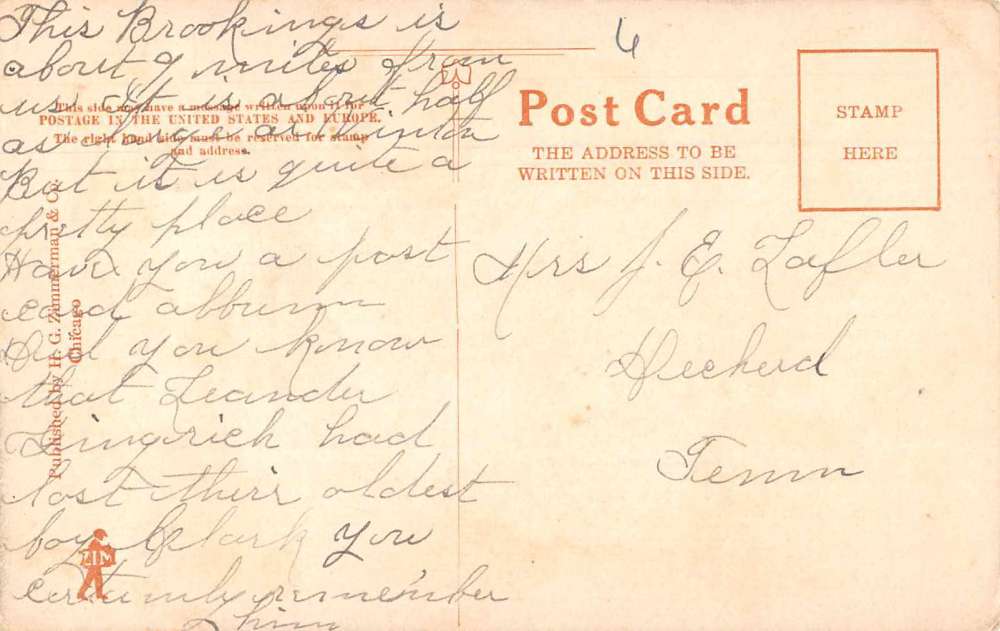 This Brookings is
about 9 miles from
us. It is about half
as large as Vinton
But it is quite a
pretty place
Have you a post
card album
Did you know
that Leander
Gingrich had
lost their oldest
boy Clark you
certainly remember
him
6
This side may have a message written upon it for
POSTAGE IN THE UNITED STATES AND EUROPE.
The right hand side must be reserved for stamp
and address.
Published by H. G. Zimmerman & Co.
Chicago
ZIM
Post Card
THE ADDRESS TO BE
WRITTEN ON THIS SIDE.
STAMP
HERE
Mrs J. E. Lafler
Decherd
Tenn